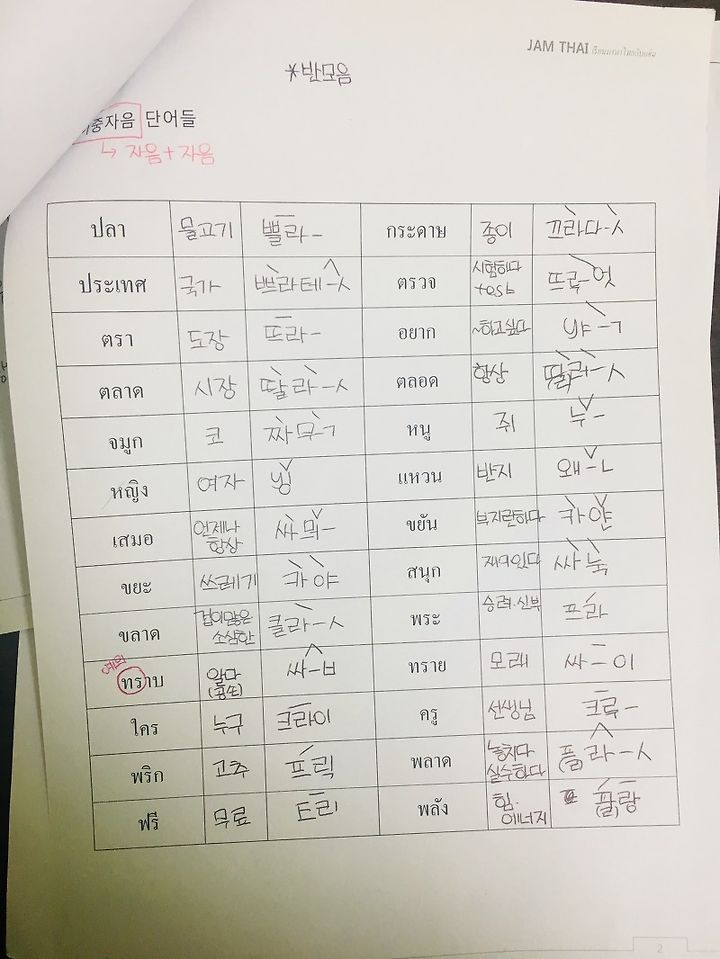 JAM THAI เรียนภาษาไทยกับแจ่ม
*반모음
중자음 단어들
↳ 자음 + 자음
ปลา 물고기 쁠라- กระดาษ 종이 끄라다-ㅅ
ประเทศ 국가 쁘라테-ㅅ ตรวจ 시험하다 test 뜨루-엇
ตรา 도장 뜨라- อยาก ~하고싶다 야-ㄱ
ตลาด 시장 딸라-ㅅ ตลอด 항상
จมูก 코 짜무-ㄱ หนู 쥐 누-
หญิง 여자 닝 แหวน 반지 왜-ㄴ
เสมอ 언제나 항상 싸뭐- ขยัน 부지런하다 카얀
ขยะ 쓰레기 카야 สนุก 재미있다 싸눅
ขลาด 겁이많은 소심한 클라-ㅅ พระ 승려·신부 프라
예외
ทราบ 알다 (공손) 싸-ㅂ ทราย 모래 싸-이
ใคร 누구 크라이 ครู 선생님 크루-
พริก 고추 프릭 พลาด 놓치다 실수하다 (플)라-ㅅ
ฟรี 무료 프리 พลัง 힘·에너지
2